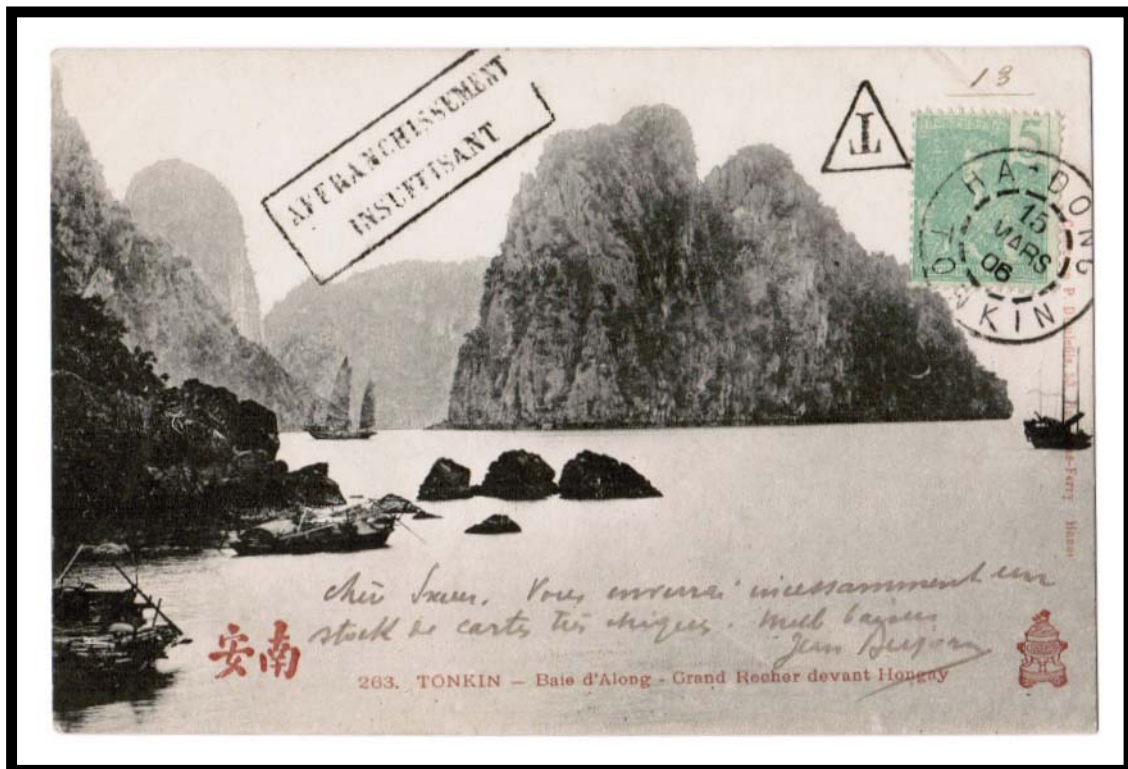 AFFRANCHISSEMENT
INSUFFISANT
T
13
5
HA-DONG
15
MARS
06
TONKIN
Ferry Hanoi
Vous enverrai incessamment un
stock de cartes très chiques.
Jean
安南
263. TONKIN – Baie d'Along - Grand Rocher devant Hongay